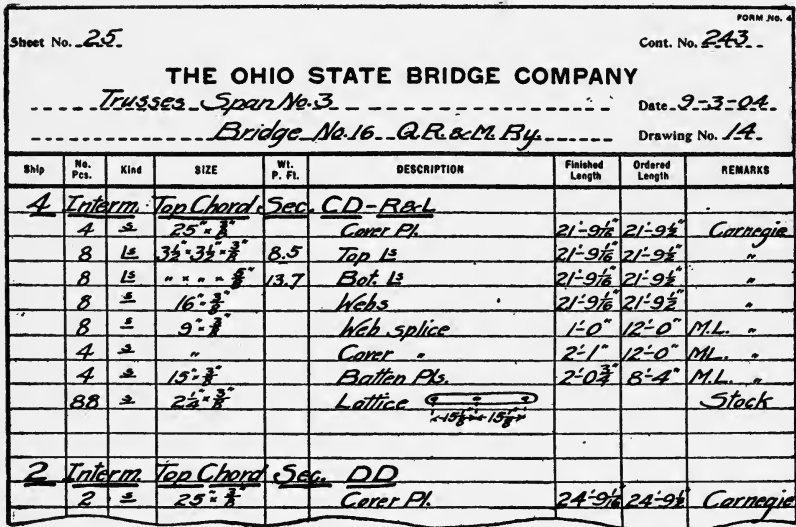 FORM No. 4
Sheet No. 25 Cont. No. 243
THE OHIO STATE BRIDGE COMPANY
Trusses Span No. 3 Date 9-3-04
Bridge No. 16 Q.R.&M. Ry. Drawing No. 14
Ship No. Pcs. Kind SIZE Wt. P. Ft. DESCRIPTION Finished Length Ordered Length REMARKS
4 Interm. Top Chord Sec. CD-R&L
4 s 25"×3/8" Cover Pl. 21'-9 1/16" 21'-9 1/2" Carnegie
8 Ls 3 1/2"×3 1/2"×3/8" 8.5 Top Ls 21'-9 1/16" 21'-9 1/2" "
8 Ls " × " × 5/8" 13.7 Bot. Ls 21'-9 1/16" 21'-9 1/2" "
8 s 16"×3/8" Webs 21'-9 1/16" 21'-9 1/2" "
8 s 9"×3/8" Web splice 1'-0" 12'-0" M.L. "
4 s " Cover " 2'-1" 12'-0" ML. "
4 s 15"×3/8" Batten Pls. 2'-0 3/4" 8'-4" M.L. "
88 s 2 1/4"×3/8" Lattice Stock
15 1/8" 15 1/8"
2 Interm. Top Chord Sec. DD
2 s 25"×3/8" Cover Pl. 24'-9 1/16" 24'-9 1/2" Carnegie